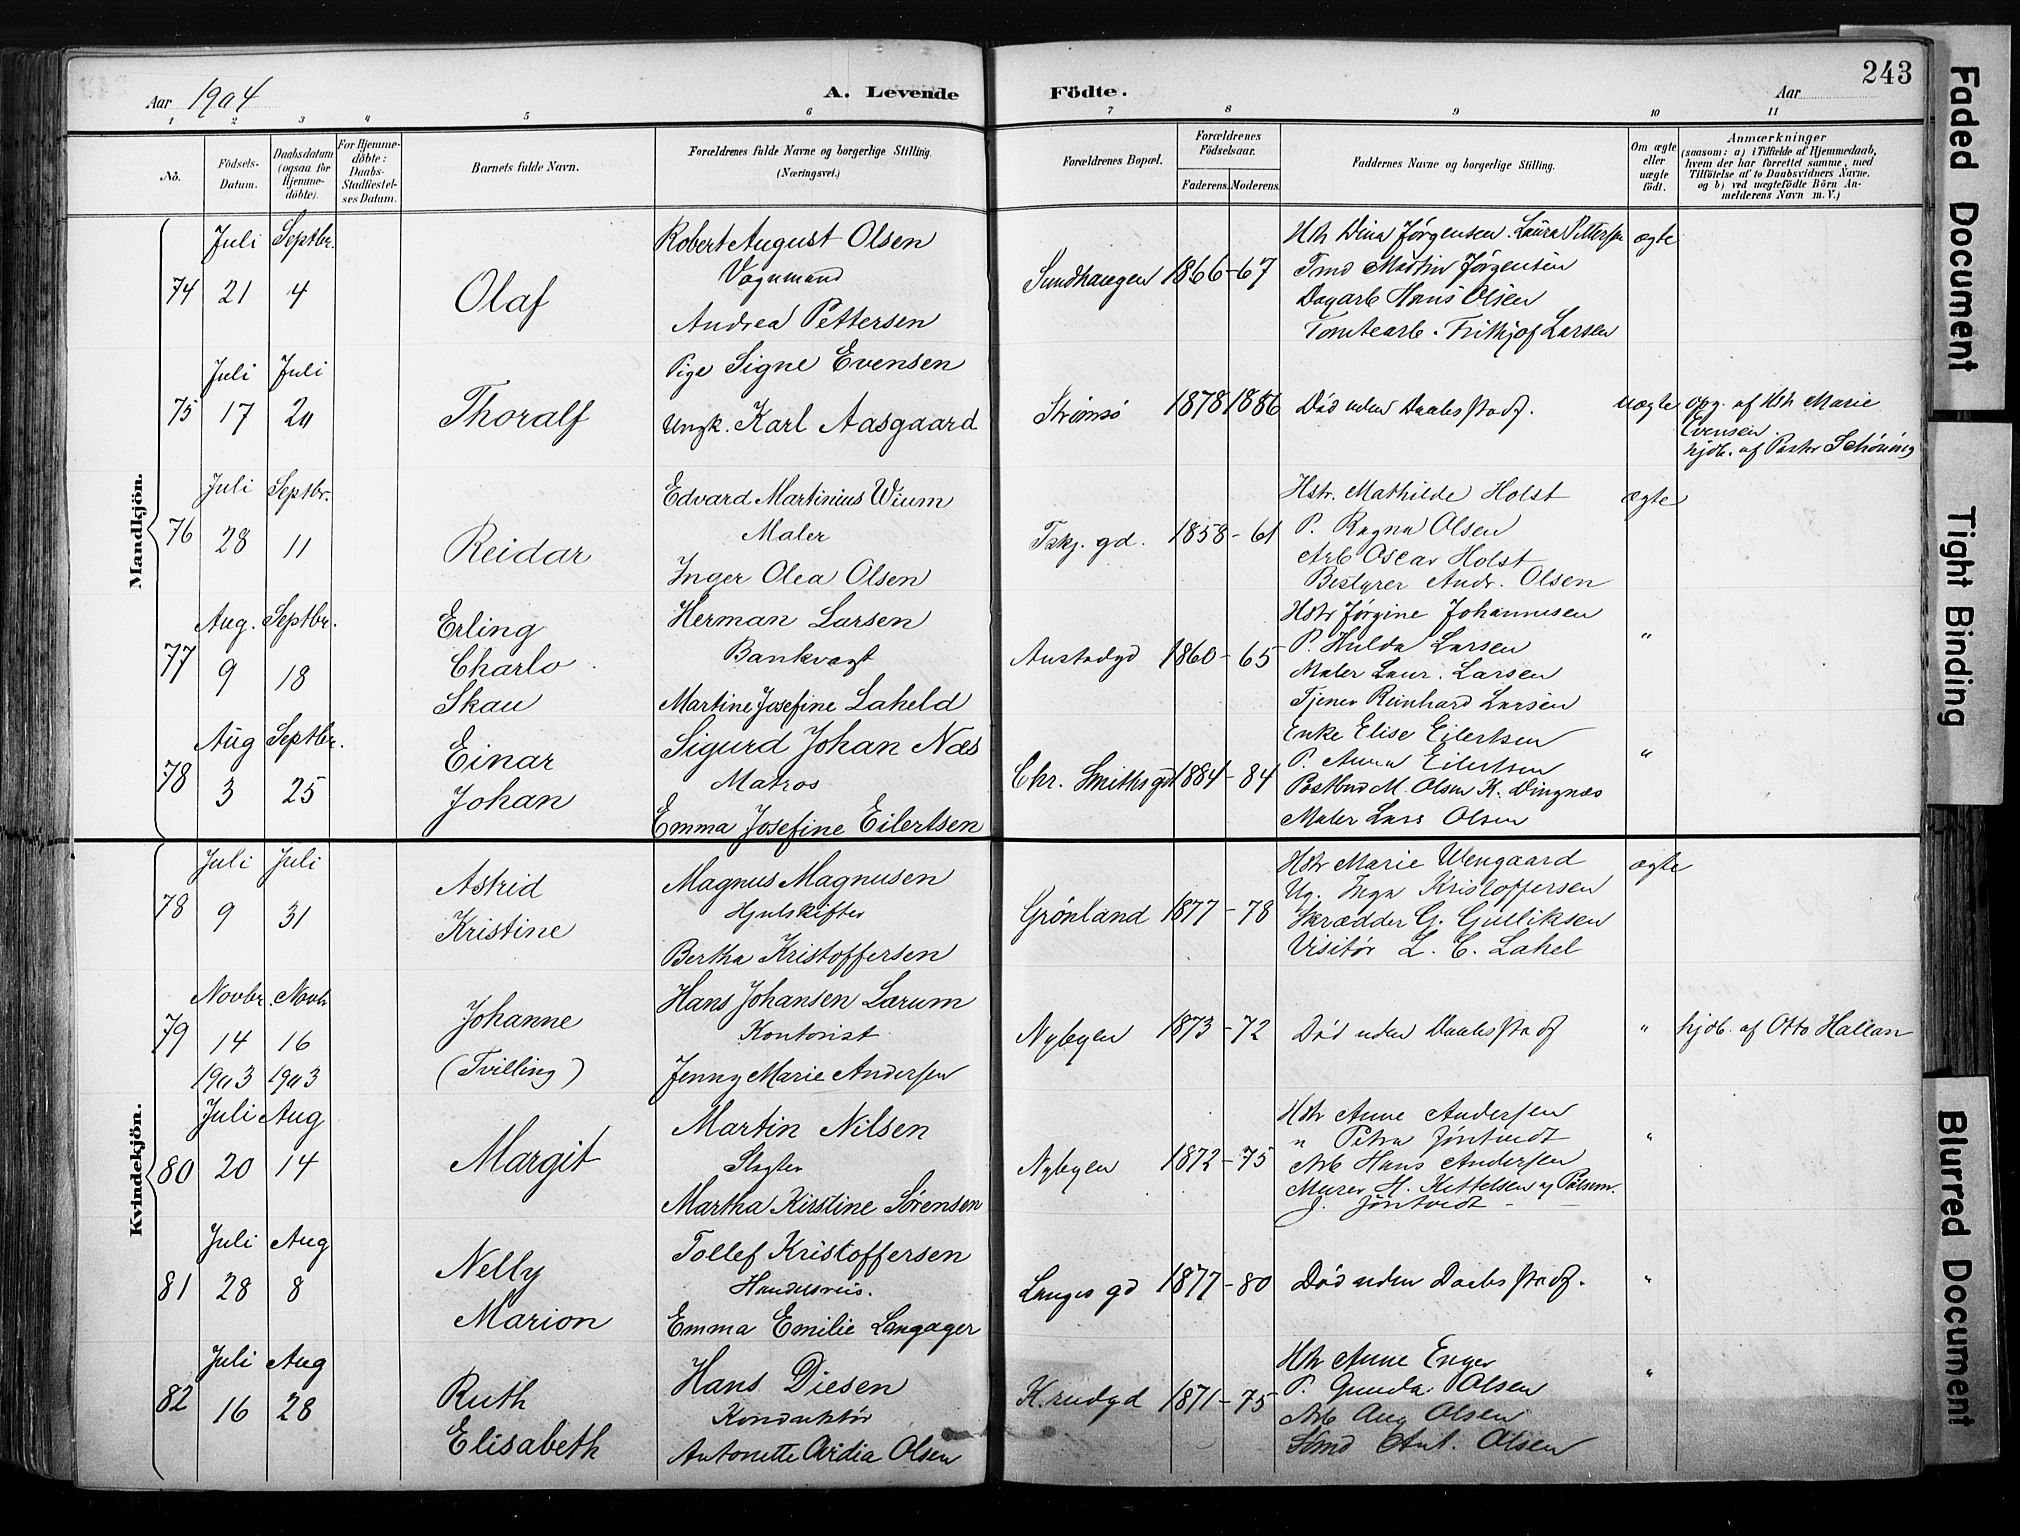 243
Aar 1904
A. Levende
Födte.
Aar
1 2 3 4 5 6 7 8 9 10 11
No.
Födsels-
Datum.
Daabsdatum
(ogsaa for
Hjemme-
döbte).
For Hjemme-
döbte:
Daabs-
Stadfæstel-
ses Datum.
Barnets fulde Navn.
Forældrenes fulde Navne og borgerlige Stilling.
(Næringsvei.)
Forældrenes Bopæl.
Forældrenes
Födselsaar.
Faderens. Moderens.
Faddernes Navne og borgerlige Stilling.
Om ægte
eller
uægte
födt.
Anmærkninger
(saasom: a) i Tilfælde af Hjemmedaab,
hvem der har forrettet samme, med
Tilföielse af to Daabsvidners Navne.
og b) ved uægtefödte Börn An-
melderens Navn m. V.)
Mandkjön.
74
Juli
21
Septbr.
4
Olaf
Robert August Olsen
Vognmand
Andrea Pettersen
Sundhaugen
1866-67
Hstr Dina Jørgensen. Laura Pettersen
Tmd Martin Jørgensen
Dagarb Hans Olsen
Tomtearb. Frithjof Larsen
ægte
75
Juli
17
Juli
20
Thoralf
Pige Signe Evensen
Ungk. Karl Aasgaard
Strømsö
1878 1886
Død uden Daabsstadf.
uægte
opg. af Hstr Marie
Evensen.
hjdb. af Pastor Schöning
76
Juli
28
Septbr.
11
Reidar
Edvard Martinius Wium
Maler
Inger Olea Olsen
Tskj. gd.
1858-61
Hstr. Mathilde Holst
P. Ragna Olsen
Arb Oscar Holst
Bestyrer Andr. Olsen
ægte
77
Aug.
9
Septbr.
18
Erling
Charlo
Skau
Herman Larsen
Bankvagt
Martine Josefine Laheld
Austadgd
1860-65
Hstr Jørgine Johannesen
P. Hulda Larsen
Maler Laur. Larsen
Tjener Reinhard Larsen
"
78
Aug
3
Septbr.
25
Einar
Johan
Sigurd Johan Næs
Matros
Emma Josefine Eilertsen
Chr. Smithsgd
1884-84
Enke Elise Eilertsen
P. Anna Eilertsen
Postbud M. Olsen K. Dingnæs
Maler Lars Olsen
"
Kvindekjön.
78
Juli
9
Juli
31
Astrid
Kristine
Magnus Magnusen
Hjulskifter
Bertha Kristoffersen
Grönland
1877-78
Hstr Marie Wengaard
Ug. Inga Kristoffersen
Skrædder G. Gulliksen
Visitör L. C. Lahel
ægte
79
Novbr.
14
1903
Novbr
16
1903
Johanne
(Tvilling)
Hans Johansen Lærum
Kontorist
Jenny Marie Andersen
Nybyen
1873-72
Død uden Daabsstadf
"
hjdb. af Otto Hallan
80
Juli
20
Aug
14
Margit
Martin Nilsen
Slagter
Martha Kirstine Sørensen
Nybyen
1872-75
Hstr Anne Andersen
" Petra Jøntvedt
Arb Hans Andersen
Murer H. Kittelsen
J. Jøntvedt
"
81
Juli
28
Aug
8
Nelly
Marion
Tollef Kristoffersen
Handelsreis.
Emma Emilie Langager
Langes gd
1877-80
Død uden Daabsstadf.
"
82
Juli
16
Aug
28
Ruth
Elisabeth
Hans Diesen
Konduktör
Antonette Ovidia Olsen
1871-75
Hstr Anne Enger
P. Gunda Olsen
Arb Aug Olsen
Sømd Ant. Olsen
"
Faded Document
Tight Binding
Blurred Document